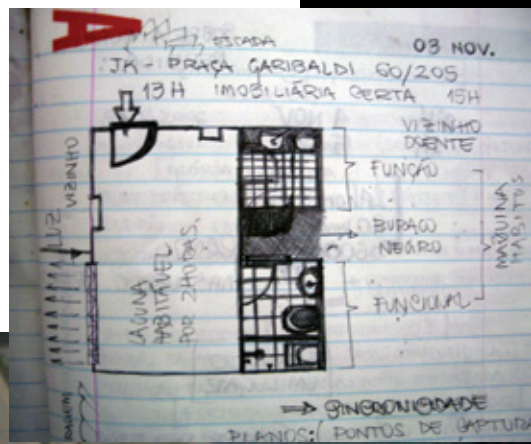 A
ESCADA
03 NOV.
JK - PRAÇA GARIBALDI 60/205
13H IMOBILIÁRIA CERTA 15H
VIZINHO
DOENTE
FUNÇÃO
BURACO
NEGRO
FUNCIONAL
MÁQUINA
HABITOS
VIZINHO
LUZ
LACUNA
HABITÁVEL
POR 2 HORAS.
⇒ SINCRONICIDADE
PLANOS: (PONTOS DE CAPTURA